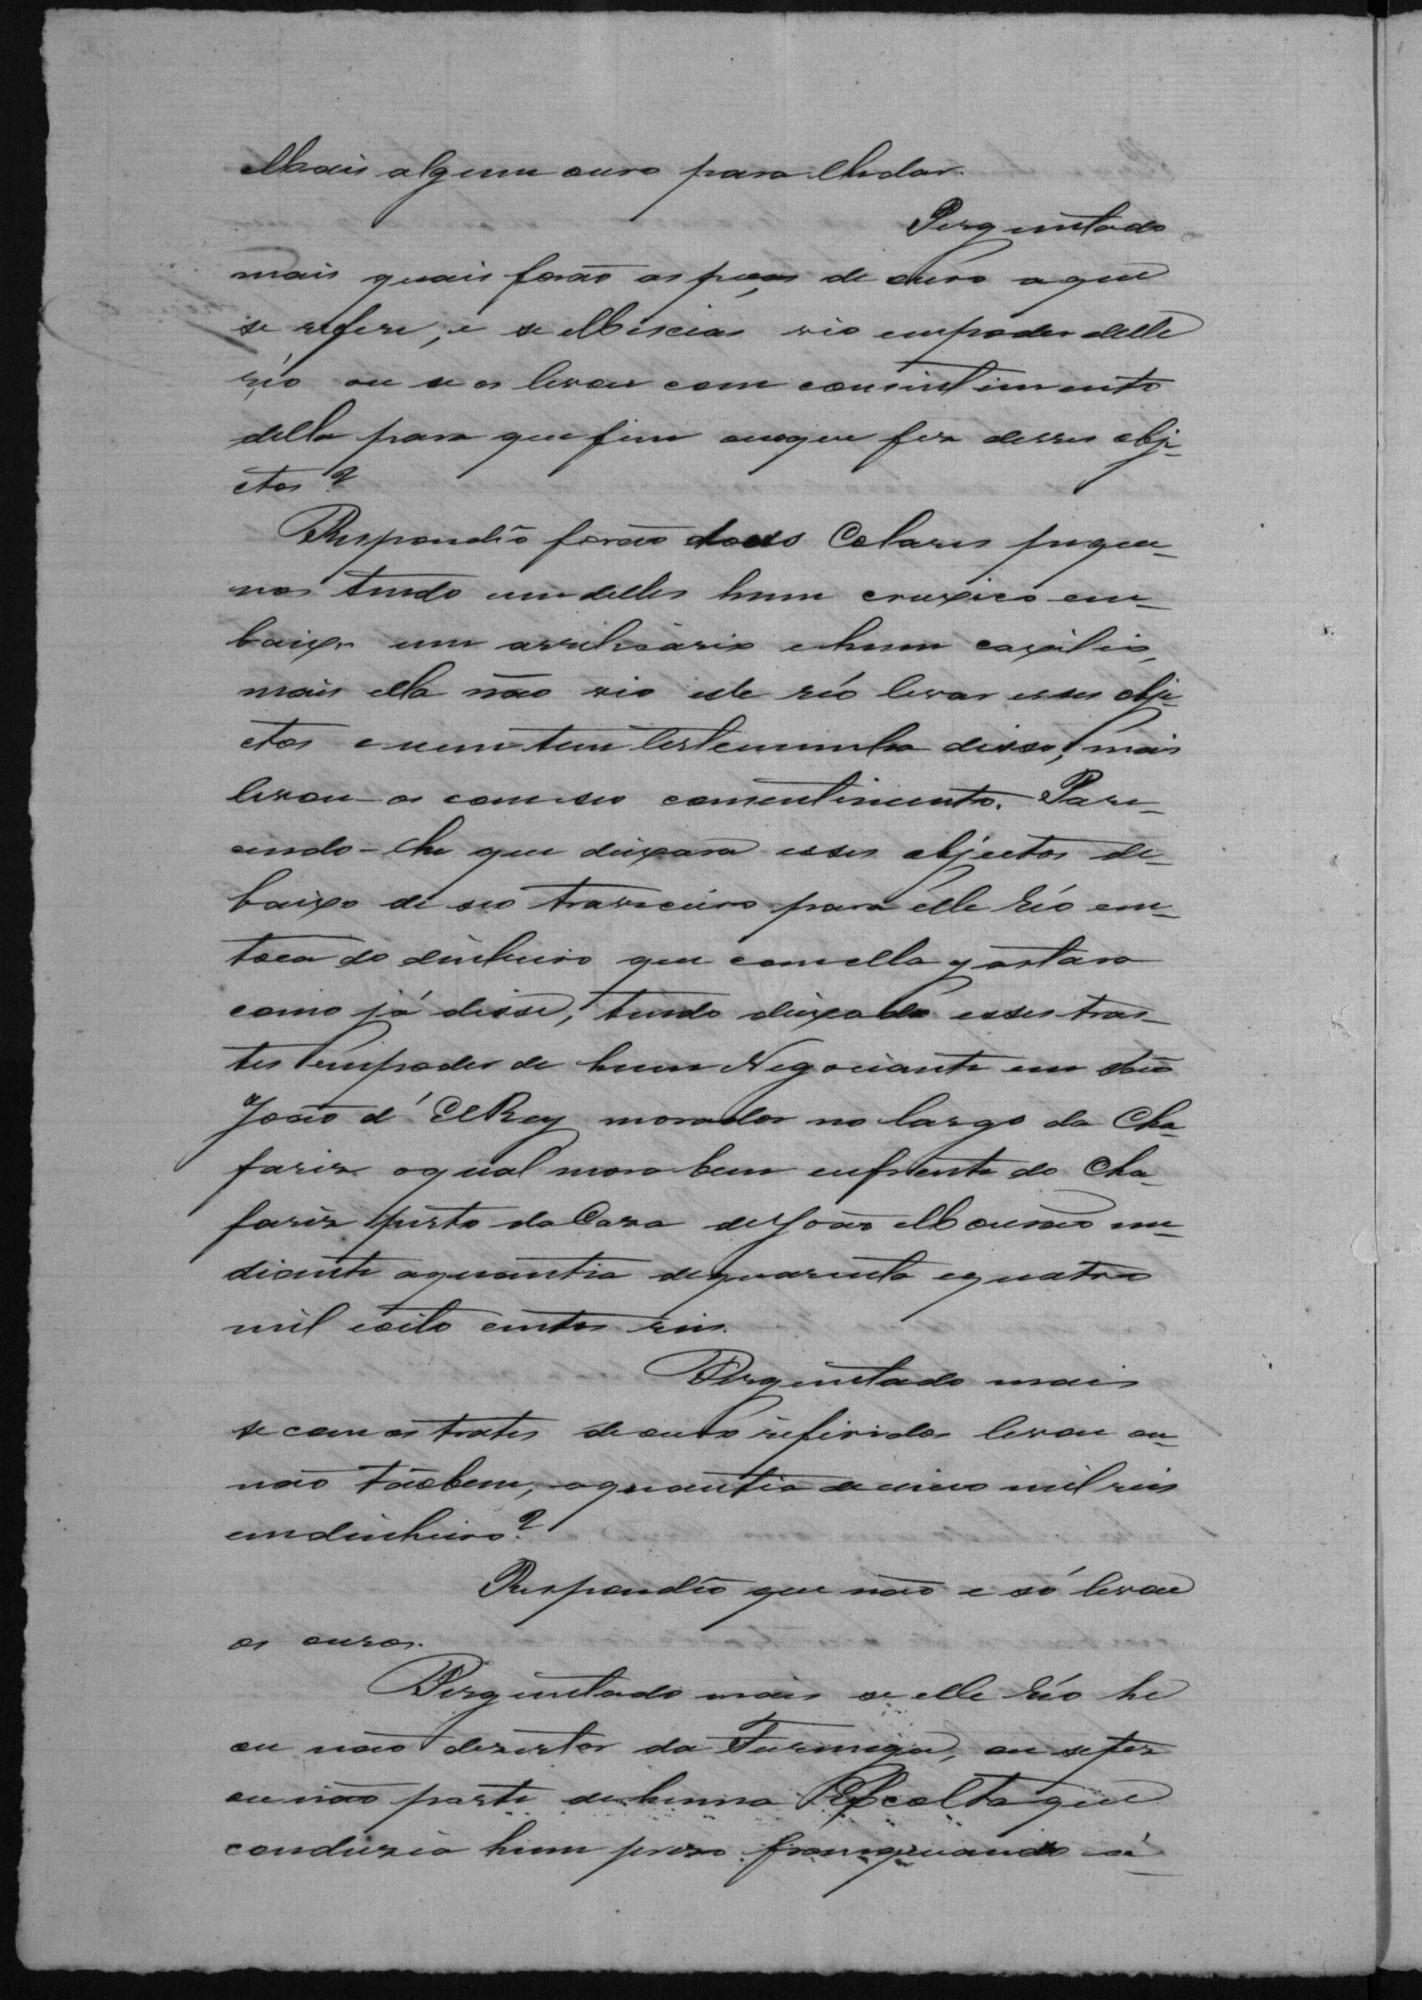 Mais algum ouro para lhe dar.
Perguntado
mais quais forão as peças de ouro a que
se refere, e se Messias vio em poder delle
réo ou se os levou com consintimento
della para que fim ou o que fez desses obje-
ctos?
Respondêo forão dous Colares peque-
nos tendo um delles hum cruxico em-
baixo um e hum
mais ella não vio este réo levar esses obje-
ctos e nem tem testemunha disso, mais
levou-os com seo consentimento. Pare-
cendo-lhe que deixara esses objectos de-
baixo de seo traveceiro para elle Réo em
toca do dinheiro que com ella gastara
como já disse, tendo deixado esses tras-
tes em poder de hum Negociante em São
João d'ElRey morador no largo da Cha-
fariz o qual mora bem enfrente do Cha-
fariz perto da Caza de João Mourão me-
diante a quantia de quarenta e quatro
mil e oito centos reis.
Perguntado mais
se com os trastes de ouro riferidos levou ou
não tãobem, a quantia de cinco mil reis
em dinheiro?
Respondêo que não e só levou
os ouros.
Perguntado mais se elle Réo he
ou não dezertor da Furmiga, ou se fez
ou não parte de huma Escolta que
conduzia hum prezo franqueando a